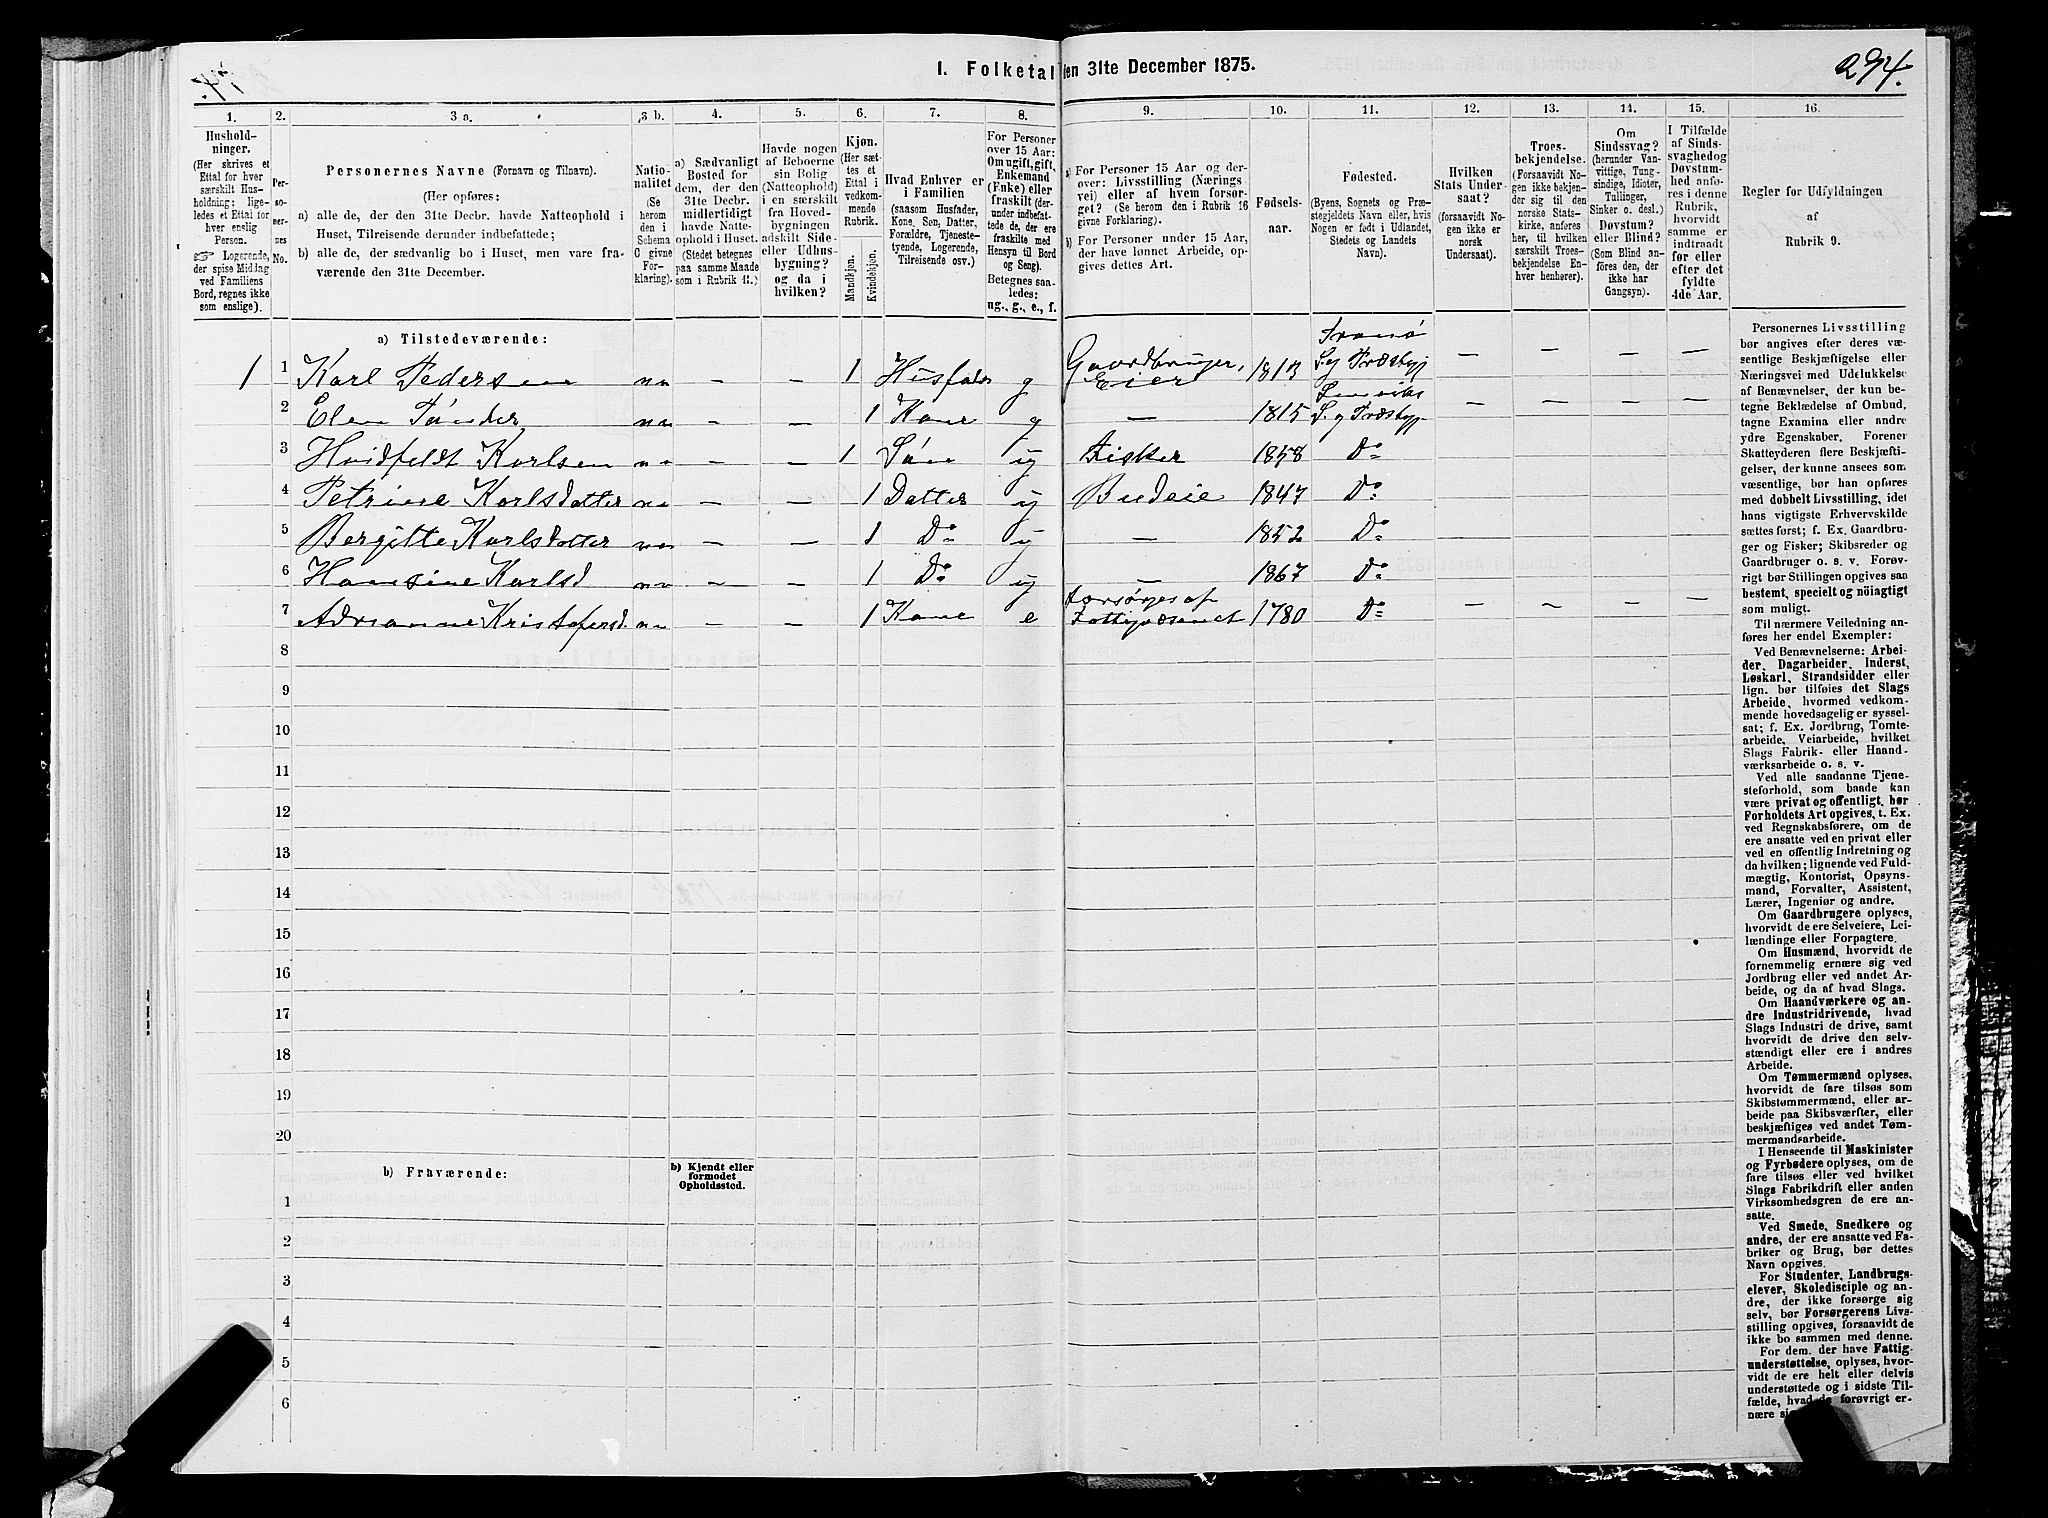 I. Folketal den 31te December 1875.
294.
1.
Hushold-
ninger.
(Her skrives et
Ettal for hver
særskilt Hus-
holdning; lige-
ledes et Ettal for
hver enslig
Person.
☞ Logerende,
der spise Middag
ved Familiens
Bord, regnes ikke
som enslige).
2.
Per-
so-
ner-
nes
No.
3 a.
Personernes Navne (Fornavn og Tilnavn).
(Her opføres:
a) alle de, der den 31te Decbr. havde Natteophold i
Huset, Tilreisende derunder indbefattede;
b) alle de, der sædvanlig bo i Huset, men vare fra-
værende den 31te December.
3 b.
Natio-
nalitet
(Se
herom
den i
Schema
C givne
For-
klaring).
4.
a) Sædvanligt
Bosted for
dem, der den
31te Decbr.
midlertidigt
havde Natte-
ophold i Huset.
(Stedet betegnes
paa samme Maade
som i Rubrik 11.)
5.
Havde nogen
af Beboerne
sin Bolig
(Natteophold)
i en særskilt
fra Hoved-
bygningen
adskilt Side-
eller Udhus-
bygning?
og da i
hvilken?
6.
Kjøn.
(Her sæt-
tes et
Ettal i
vedkom-
mende
Rubrik.
Mandkjøn.
Kvindekjøn.
7.
Hvad Enhver er
i Familien
(saasom Husfader,
Kone, Søn, Datter,
Forældre, Tjeneste-
tyende, Logerende,
Tilreisende osv.)
8.
For Personer
over 15 Aar:
Om ugift, gift,
Enkemand
(Enke) eller
fraskilt (der-
under indbefat-
tede de, der ere
fraskilte med
Hensyn til Bord
og Seng).
Betegnes saa-
ledes:
ug., g., e., f.
9.
a) For Personer 15 Aar og der-
over: Livsstilling (Nærings
vei) eller af hvem forsør-
get? (Se herom den i Rubrik 16
givne Forklaring).
b) For Personer under 15 Aar,
der have lønnet Arbeide, op-
gives dettes Art.
10.
Fødsels-
aar.
11.
Fødested.
(Byens, Sognets og Præ-
stegjeldets Navn eller, hvis
Nogen er født i Udlandet,
Stedets og Landets
Navn).
12.
Hvilken
Stats Under-
saat?
(forsaavidt No-
gen ikke er
norsk
Undersaat).
13.
Troes-
bekjendelse.
(Forsaavidt No-
gen ikke bekjen-
der sig til den
norske Stats-
kirke, anføres
her, til hvilken
særskilt Troes-
bekjendelse En-
hver henhører).
14.
Om
Sindssvag?
(herunder Van-
vittige, Tung-
sindige, Idioter,
Tullinger,
Sinker o. desl.)
Døvstum?
eller Blind?
(Som Blind an-
føres den, der
ikke har
Gangsyn).
15.
I Tilfælde
af Sinds-
svaghed og
Døvstum-
hed anfø-
res i denne
Rubrik,
hvorvidt
samme er
indtraadt
før eller
efter det
fyldte
4de Aar.
16.
Regler for Udfyldningen
af
Rubrik 9.
a) Tilstedeværende:
1 1 Karl Pedersen nn – – 1 Husfader g Gaardbruger, Eier 1813 Tranø S. og Præstegj – – – –
2 Elen Tønder nn – – 1 Kone g – 1815 Lenviks S. og Præstegj – – – –
3 Hvidfeldt Karlsen nn – – 1 Søn ug Fisker 1858 Do
4 Petrine Karlsdatter nn – – 1 Datter ug Budeie 1847 Do
5 Bergitte Karlsdatter nn – – 1 Do ug – 1852 Do
6 Hansine Karlsd nn – – 1 Do ug – 1867 Do
7 Adrianne Kristofersd. nn – – 1 Kone e Forsørges af Fattigvæsenet 1780 Do – – – –
8
9
10
11
12
13
14
15
16
17
18
19
20
b) Fraværende:
b) Kjendt eller
formodet
Opholdssted.
1
2
3
4
5
6
Personernes Livsstilling
bør angives efter deres væ-
sentlige Beskjæftigelse eller
Næringsvei med Udelukkelse
af Benævnelser, der kun be-
tegne Beklædelse af Ombud,
tagne Examina eller andre
ydre Egenskaber. Forener
Skatteyderen flere Beskjæfti-
gelser, der kunne ansees som
væsentlige, bør han opføres
med dobbelt Livsstilling, idet
hans vigtigste Erhvervskilde
sættes først; f. Ex. Gaardbru-
ger og Fisker; Skibsreder og
Gaardbruger o. s. v. Forøv-
rigt bør Stillingen opgives saa
bestemt, specielt og nøiagtigt
som muligt.
Til nærmere Veiledning an-
føres her endel Exempler:
Ved Benævnelserne: Arbei-
der, Dagarbeider, Inderst,
Løskarl, Strandsidder eller
lign. bør tilføies det Slags
Arbeide, hvormed vedkom-
mende hovedsagelig er syssel-
sat; f. Ex. Jordbrug, Tomte-
arbeide, Veiarbeide, hvilket
Slags Fabrik- eller Haand-
værksarbeide o. s. v.
Ved alle saadanne Tjene-
steforhold, som baade kan
være privat og offentligt, bør
Forholdets Art opgives, t. Ex.
ved Regnskabsførere, om de
ere ansatte ved en privat eller
ved en offentlig Indretning og
da hvilken; lignende ved Fuld-
mægtig, Kontorist, Opsyns-
mand, Forvalter, Assistent,
Lærer, Ingeniør og andre.
Om Gaardbrugere oplyses,
hvorvidt de ere Selveiere, Lei-
lændinge eller Forpagtere.
Om Husmænd, hvorvidt de
fornemmelig ernære sig ved
Jordbrug eller ved andet Ar-
beide, og da af hvad Slags.
Om Haandværkere og an-
dre Industridrivende, hvad
Slags Industri de drive, samt
hvorvidt de drive den selv-
stændigt eller ere i andres
Arbeide.
Om Tømmermænd oplyses,
hvorvidt de fare tilsøs som
Skibstømmermænd, eller ar-
beide paa Skibsværfter, eller
beskjæftiges ved andet Tøm-
mermandsarbeide.
I Henseende til Maskinister
og Fyrbødere oplyses, om de
fare tilsøs eller ved hvilket
Slags Fabrikdrift eller anden
Virksomhedsgren de ere an-
satte.
Ved Smede, Snedkere og
andre, der ere ansatte ved Fa-
briker og Brug, bør dettes
Navn opgives.
For Studenter, Landbrugs-
elever, Skoledisciple og an-
dre, der ikke forsørge sig
selv, bør Forsørgerens Livs-
stilling opgives, forsaavidt de
ikke bo sammen med denne.
For dem, der have Fattig-
understøttelse, oplyses, hvor-
vidt de ere helt eller delvis
understøttede og i sidste Til-
fælde, hvad de forøvrigt er-
nære